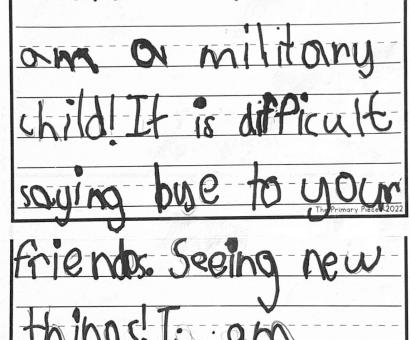 am a military
child! It is difficult
saying bye to your
The Primary Piece 2022
friends. Seeing new
things! I am